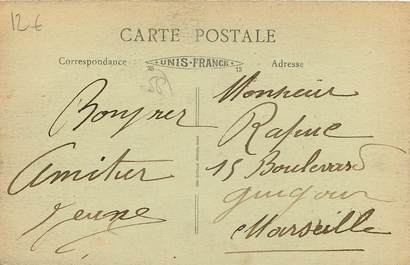 12 €
CARTE POSTALE
Correspondance
UNIS-FRANCE
Adresse
Bonjour
Amitier
Monsieur
Rapue
15 Boulevard
Marseille